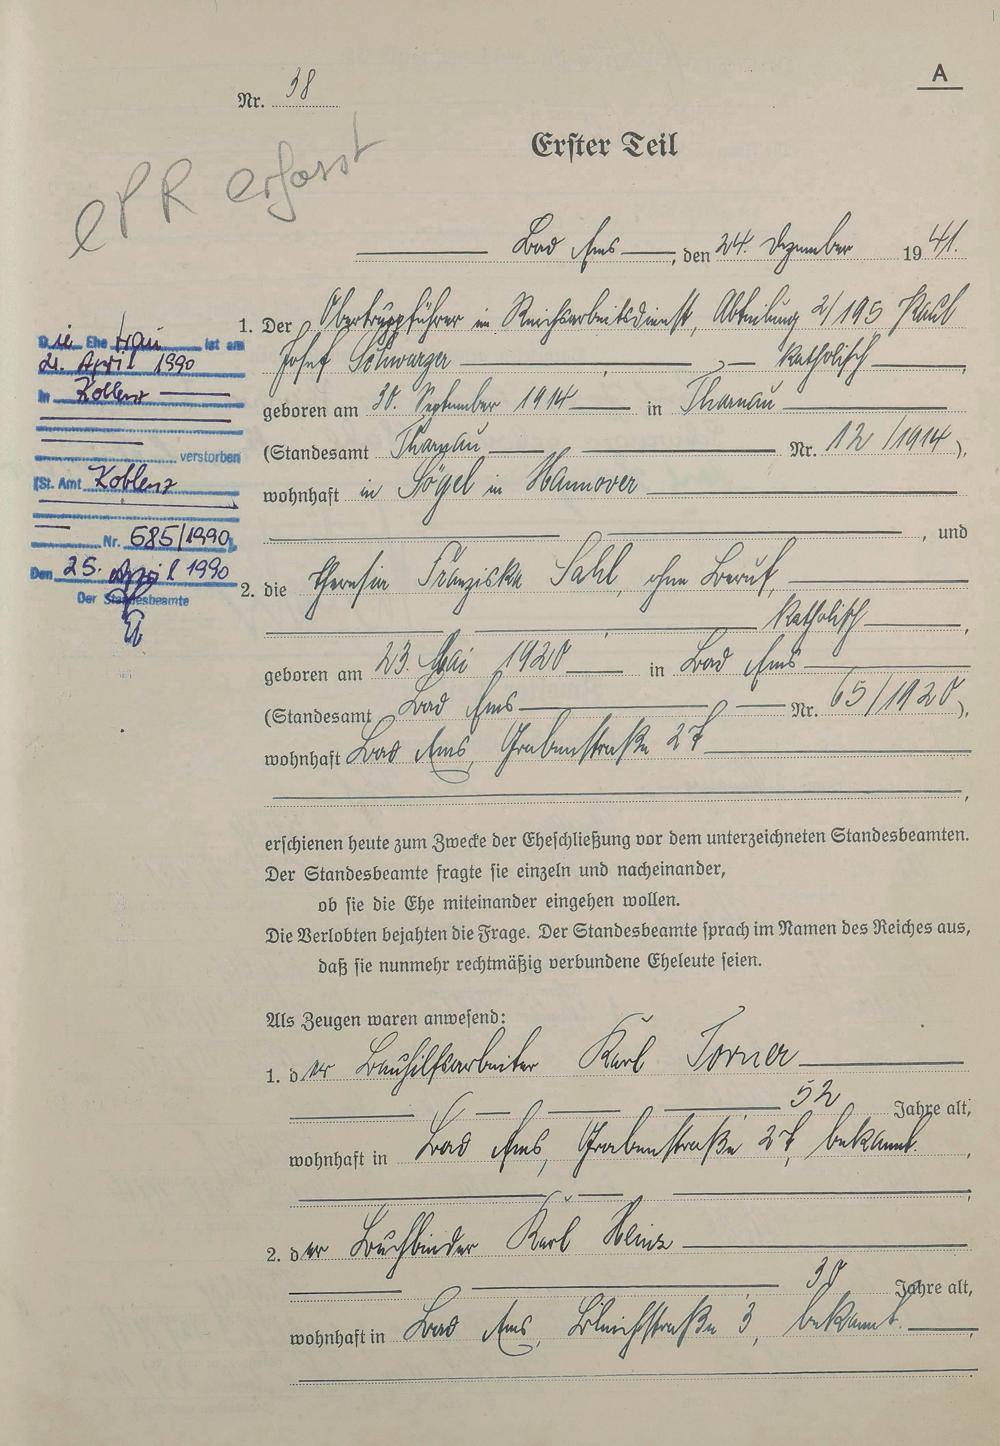 A
Nr. 38
Erster Teil
ePR erfasst
Bad Ems, den 24. Dezember 1941.
1. Der Obertruppführer im Reichsarbeitsdienst, Abteilung 2/195 Paul
Josef Schwarzer katholisch,
geboren am 30. September 1914 in Tharnau
(Standesamt Tharnau Nr. 12/1914),
wohnhaft in Sögel in Hannover
, und
2. die Theresia Franziska Sahl, ohne Beruf,
katholisch,
geboren am 23. Mai 1920 in Bad Ems
(Standesamt Bad Ems Nr. 65/1920),
wohnhaft Bad Ems, Grabenstraße 27
,
Die Ehefrau ist am
21. April 1990
in Koblenz
verstorben
(St. Amt Koblenz
Nr. 685/1990).
Den 25. April 1990
Der Standesbeamte
erschienen heute zum Zwecke der Eheschließung vor dem unterzeichneten Standesbeamten.
Der Standesbeamte fragte sie einzeln und nacheinander,
ob sie die Ehe miteinander eingehen wollen.
Die Verlobten bejahten die Frage. Der Standesbeamte sprach im Namen des Reiches aus,
daß sie nunmehr rechtmäßig verbundene Eheleute seien.
Als Zeugen waren anwesend:
1. der Bauhilfsarbeiter Karl
52 Jahre alt,
wohnhaft in Bad Ems, Grabenstraße 27, bekannt.
2. der Buchbinder Karl Heinz
30 Jahre alt,
wohnhaft in Bad Ems, 3, bekannt.